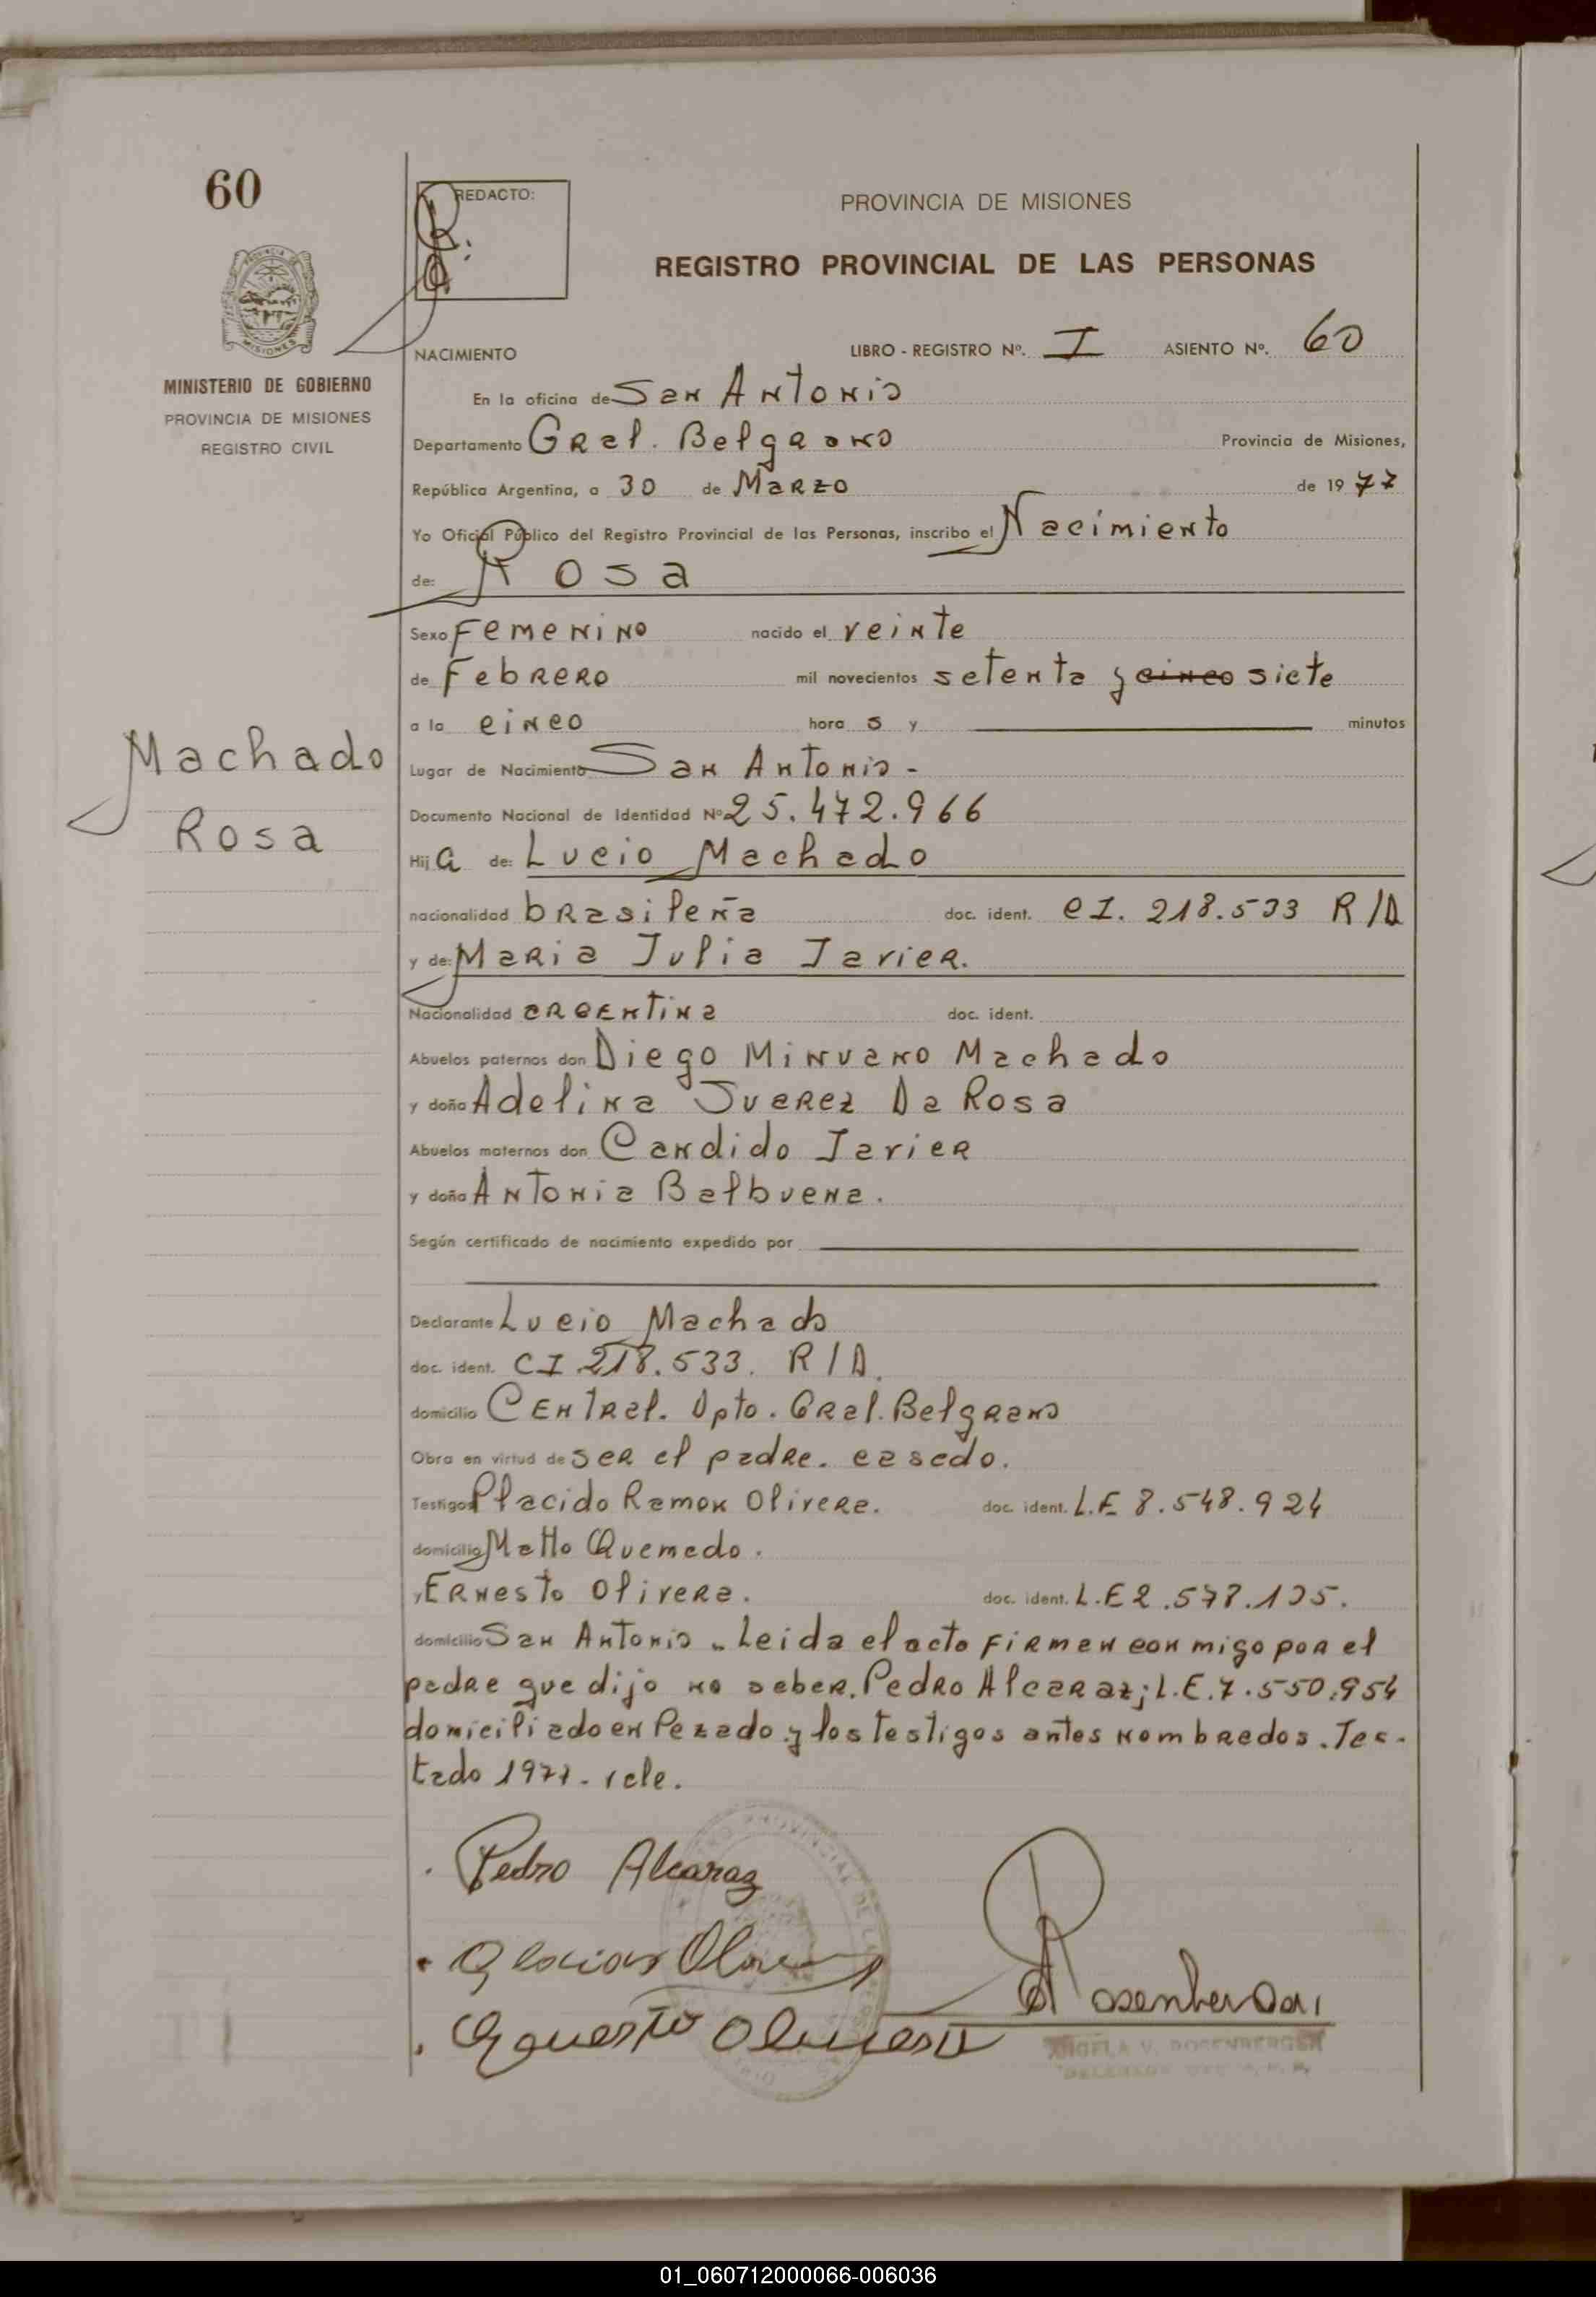 60
REDACTO:
PROVINCIA DE MISIONES
REGISTRO PROVINCIAL DE LAS PERSONAS
MISIONES
MINISTERIO DE GOBIERNO
PROVINCIA DE MISIONES
REGISTRO CIVIL
NACIMIENTO LIBRO - REGISTRO Nº. I ASIENTO Nº. 60
En la oficina de San Antonio
Departamento Gral. Belgrano Provincia de Misiones,
República Argentina, a 30 de Marzo de 1977
Yo Oficial Público del Registro Provincial de las Personas, inscribo el Nacimiento
de: Rosa
Sexo Femenino nacido el veinte
de Febrero mil novecientos setenta y cinco siete
a la cinco hora s y minutos
Machado
Rosa
Lugar de Nacimiento San Antonio -
Documento Nacional de Identidad Nº 25.472.966
Hij a de: Lucio Machado
nacionalidad brasileña doc. ident. CI. 218.533 R/D
y de: Maria Julia Javier.
Nacionalidad argentina doc. ident.
Abuelos paternos don Diego Minuano Machado
y doña Adelina Suarez Da Rosa
Abuelos maternos don Candido Javier
y doña Antonia Balbuena.
Según certificado de nacimiento expedido por
Declarante Lucio Machado
doc. ident. CI.218.533. R/D.
domicilio Central. Dpto. Gral. Belgrano
Obra en virtud de ser el padre. casado.
Testigos Placido Ramon Olivera. doc. ident. L.E 8.548.924
domicilio Matto Quemado.
y Ernesto Olivera. doc. ident. L.E 2.578.105.
domicilio San Antonio - Leida el acto firmen conmigo por el
padre que dijo no saber. Pedro Alcaraz; L.E.7.550.954
domiciliado en Pezado y los testigos antes nombrados. Tes-
tado 1977. vale.
Pedro Alcaraz
Olivera
Ernesto Olivera
Rosenberger
ANGELA V. ROSENBERGER
01_060712000066-006036